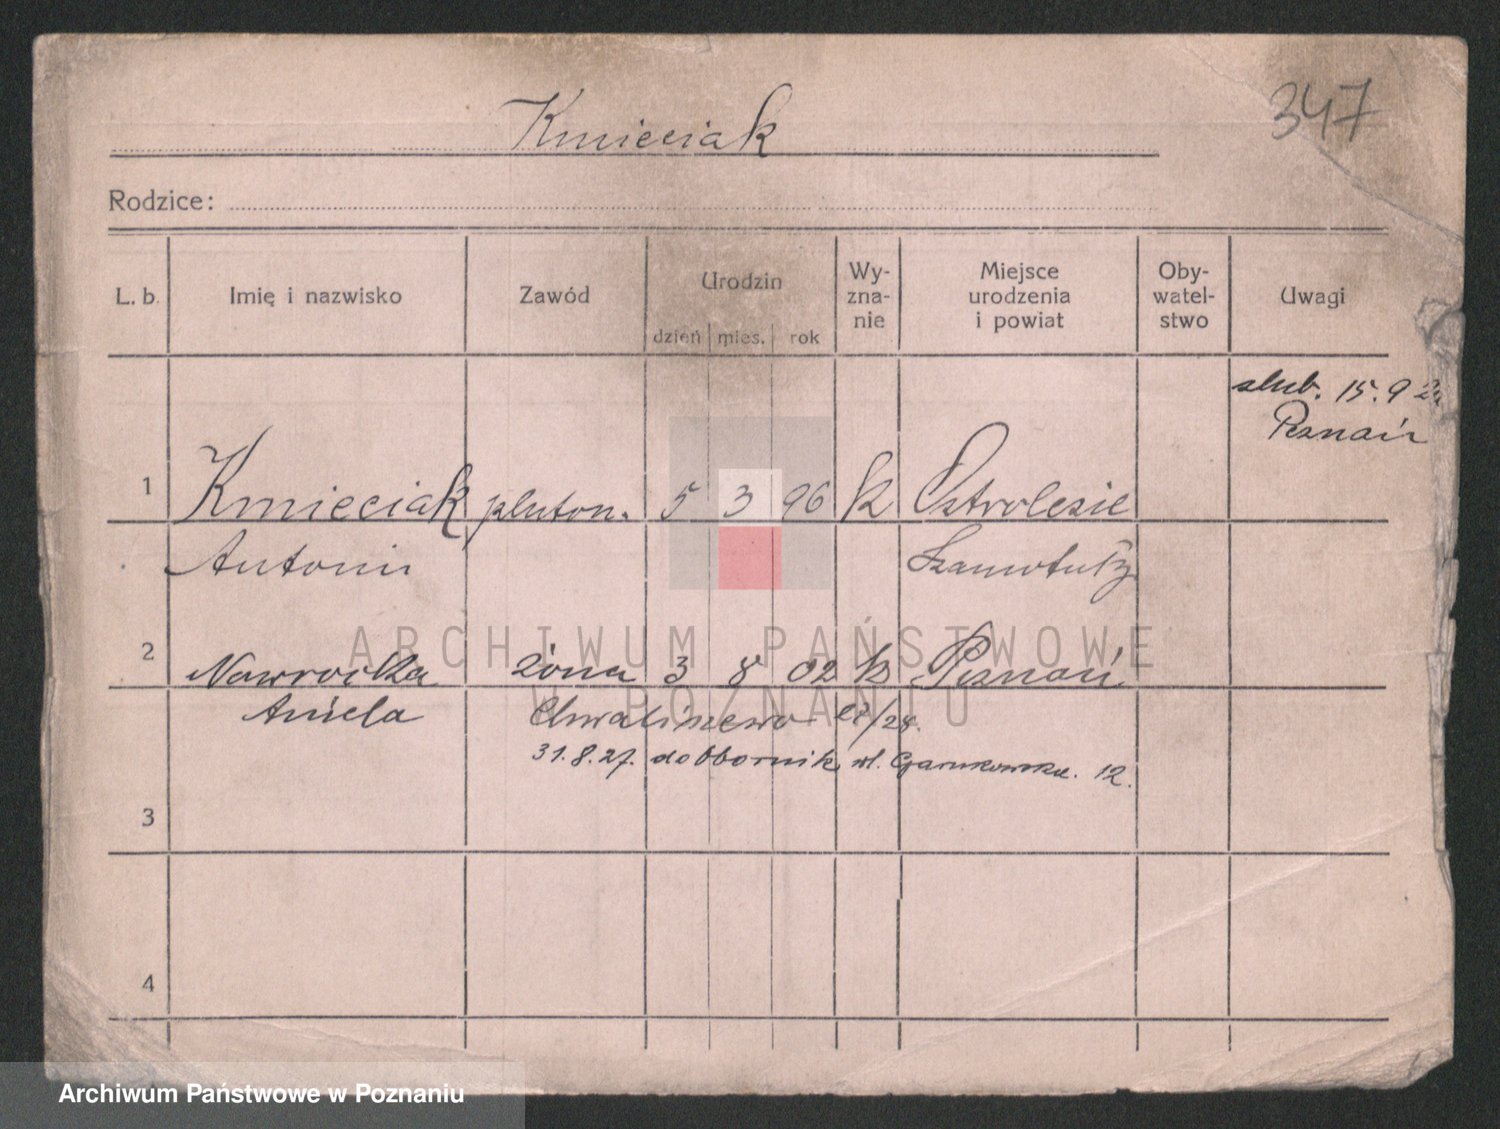 347
Kmieciak
Rodzice:
L. b. Imię i nazwisko Zawód Urodzin Wy-zna-nie Miejsce urodzenia i powiat Oby-watel-stwo Uwagi
dzień mies. rok
ślub. 15. 9
Poznań
1 Kmieciak pluton. 5 3 96 k Ostrolesie
Antoni Szamotuły
2 Nawrocka żona 3 8 02 k Poznań
Aniela Chwaliszewo /28.
31.8.27. do Obornik, ul. 12.
3
4
ARCHIWUM PAŃSTWOWE
W POZNANIU
Archiwum Państwowe w Poznaniu